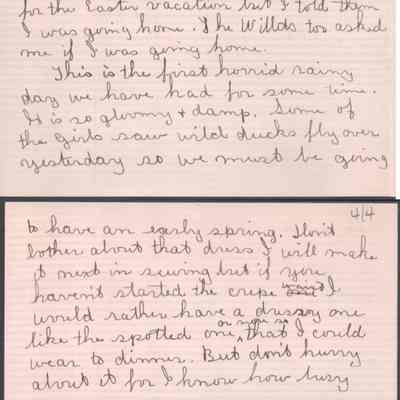 for the Easter vacation but I told them
I was going home. The Willds too asked
me if I was going home.
This is the first horrid rainy
day we have had for some time.
It is so gloomy & damp. Some of
the girls saw wild ducks fly over
yesterday so we must be going
4/4
to have an early spring. Don't
bother about that dress I will make
it next in sewing but if you
haven't started the crepe I
would rather have a dressy one
like the spotted one, that I could
wear to dinner. But don't hurry
about it for I know how busy